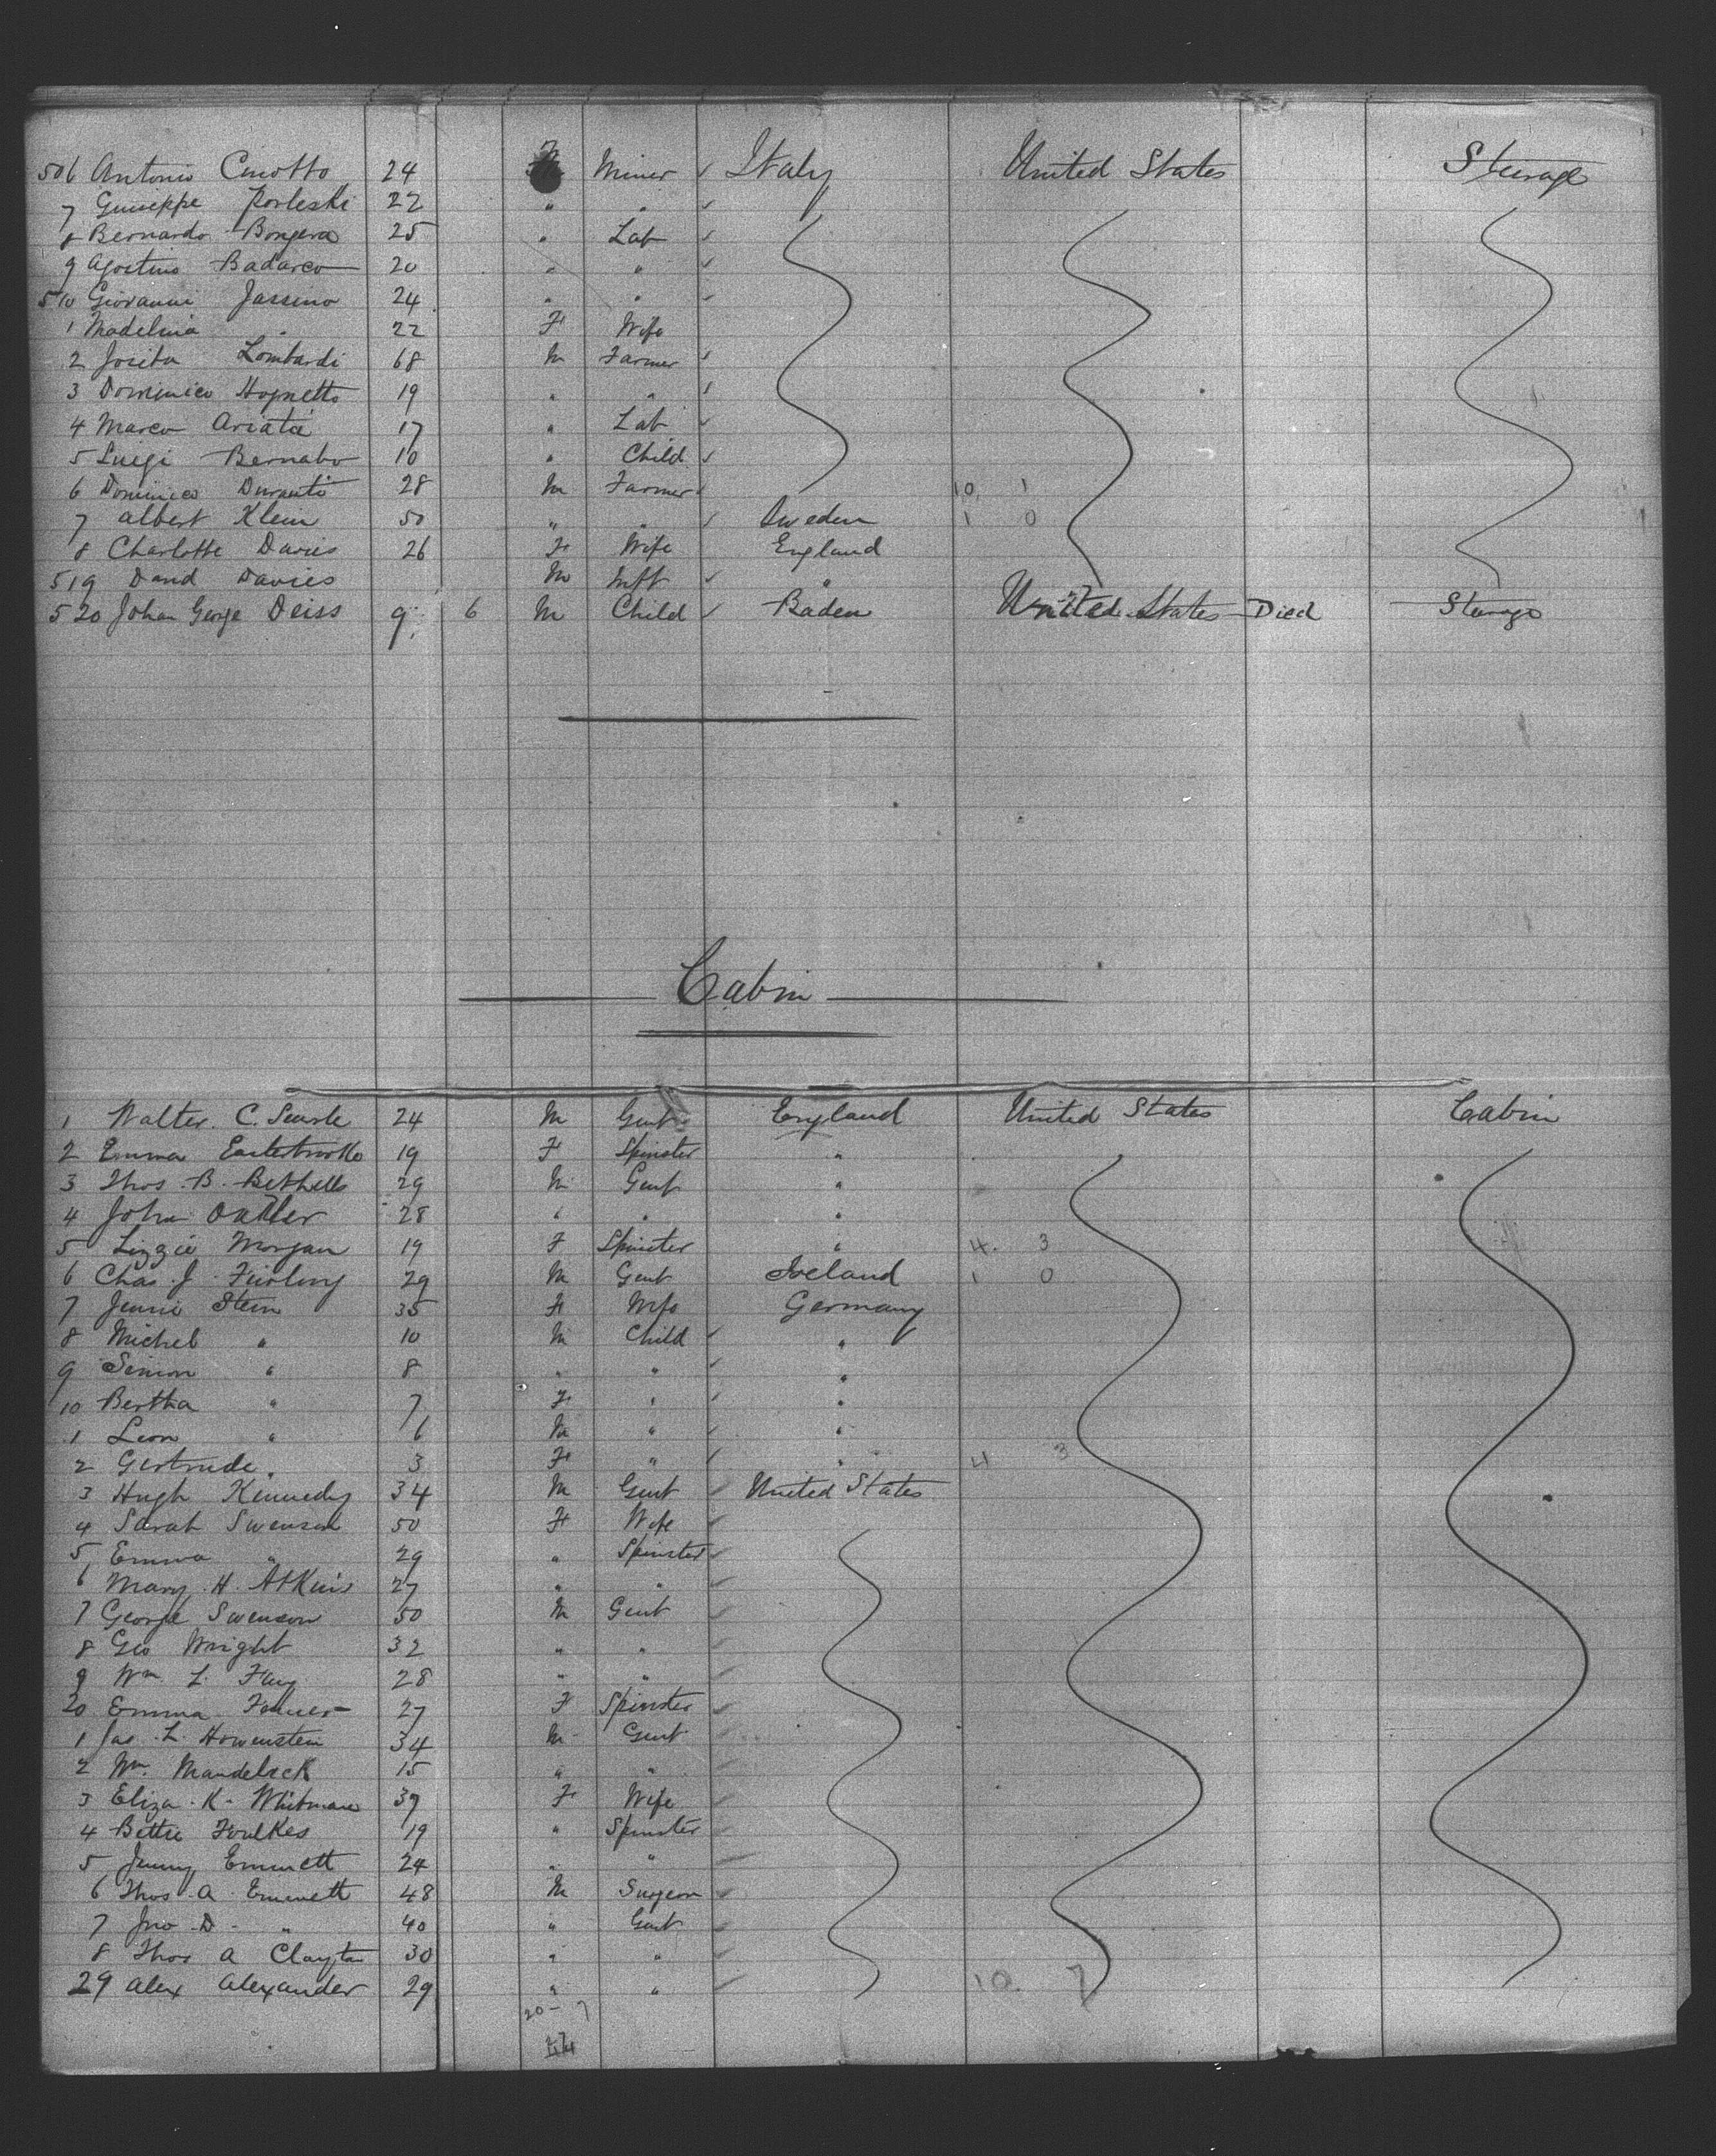 506 Antonio Cinotto 24 M Miner ✓ Italy United States Steerage
7 Giuseppe Porleski 22 " " ✓
8 Bernardo Bongera 25 " Lab ✓
9 Agostino Badarco 20 " " ✓
510 Giovanni Jassino 24 " " ✓
1 Madelina " 22 F Wife
2 Lombardi 68 M Farmer ✓
3 Dominico Hognetto 19 " "
4 Marco Ariata 17 " Lab ✓
5 Luigi Bernabo 10 " Child ✓
6 Dominico Duranti 28 M Farmer 10 1
7 Albert Klein 50 " " Sweden 1 0
8 Charlotte Davies 26 F Wife England
519 David Davies M Inft ✓ "
520 Johan George Deiss 9 6 M Child ✓ Baden United States Died Steerage
Cabin
1 Walter C. Searle 24 M Gent England United States Cabin
2 Emma 19 F Spinster "
3 Thos. B. Bethells 29 M Gent "
4 John 28 " " "
5 Lizzie Morgan 19 F Spinster " 4. 3
6 Chas. J. 29 M Gent Ireland 1 0
7 Jennie Stern 35 F Wife Germany
8 Michel " 10 M Child ✓ "
9 Simon " 8 " " ✓ "
10 Bertha " 7 F " ✓ "
1 Leon " 6 M " ✓ "
2 Gertrude " 3 F " ✓ " 4 3
3 Hugh Kennedy 34 M Gent United States
4 Sarah Swenson 50 F Wife
5 Emma " 29 " Spinster
6 Mary H. Atkins 27 " "
7 George Swenson 50 M Gent
8 Geo Wright 32 " "
9 Wm L. Fay 28 " "
20 Emma 27 F Spinster
1 Jas. L. Howenstein 34 M Gent
2 Wm. Mandelack 15 " "
3 Eliza K. Whitman 39 F Wife
4 Bettie Foulkes 19 " Spinster
5 Jenny Emmett 24 " "
6 Thos. A. Emmett 48 M Surgeon
7 Jno D. " 40 " Gent
8 Thos A Clayton 30 " "
29 Alex Alexander 29 " " 10. 7
20 - 7